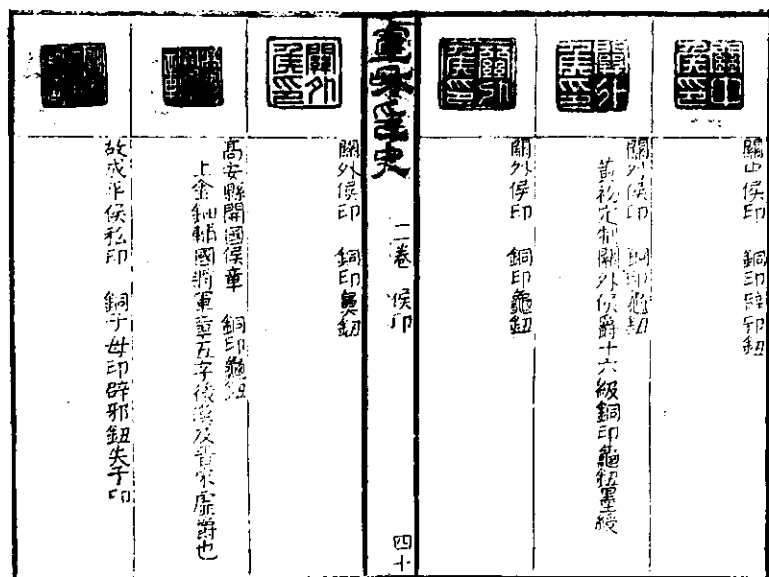 關中侯印
關中侯印 銅印辟邪鈕
關外侯印
關外侯印 銅印龜鈕
黃初定制關外侯爵十六級銅印龜鈕墨綬
關外侯印
關外侯印 銅印龜鈕
二卷 侯印
四十
關外侯印
關外侯印 銅印龜鈕
高安縣開國侯章 銅印龜鈕
上金 輔國將軍章五字後漢及晉宋虛爵也
故成平侯私印 銅子母印辟邪鈕失子印